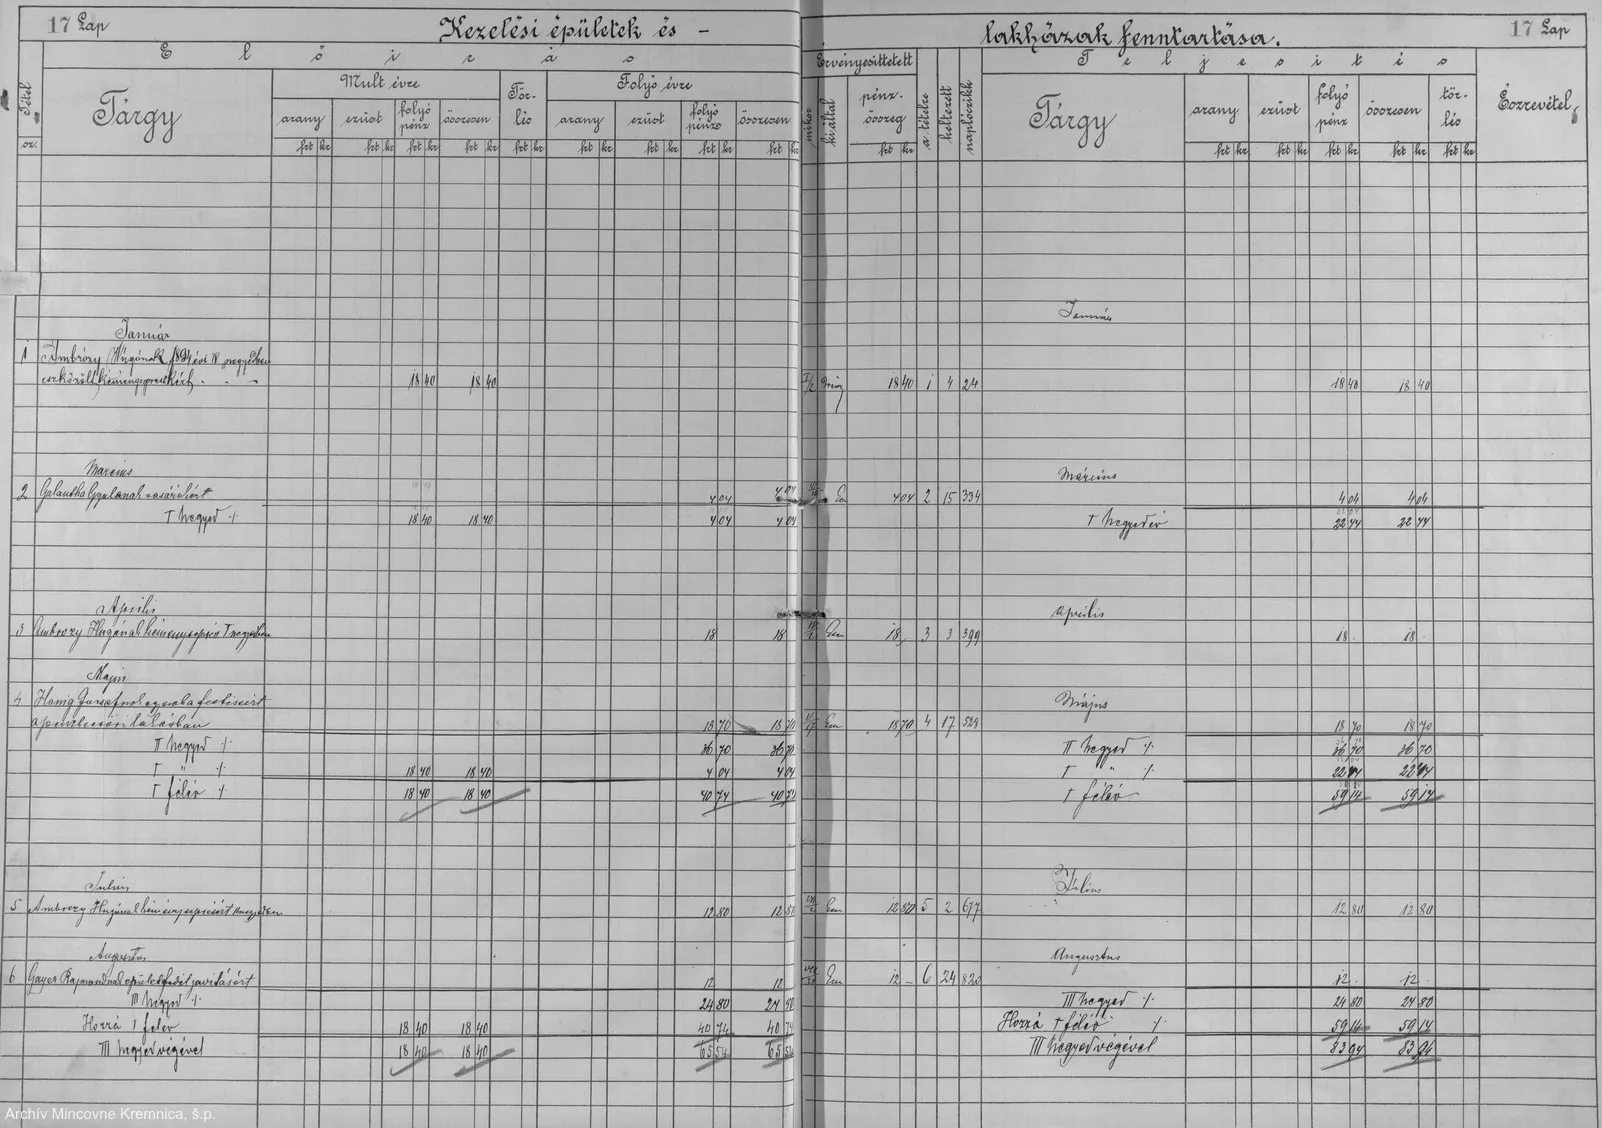 17 Lap
Kezelési épületek és -
lakházak fenntartása.
17 Lap
Előirás
Tétel
sz.
Tárgy
Mult évre
arany
ezüst
folyó pénz
összesen
Tör-lés
Folyó évre
arany
ezüst
folyó pénz
összesen
frt kr frt kr frt kr frt kr frt kr frt kr frt kr frt kr frt kr
Érvényesittetett
mikor
ki által
pénz-összeg
frt kr
a. tételre
keltezett
naplócikk
Teljesités
Tárgy
arany
ezüst
folyó pénz
összesen
tör-lés
frt kr frt kr frt kr frt kr frt kr
Észrevétel
Január
Január
1 Ambrózy Hugónak 1894 évi IV negyedben
eszközölt 18 40 18 40 18 40 1 4 24 18 40 18 40
Marcius
Március
2 Galantha Gyulának 4 04 4 04 Em 4 04 2 15 334 4 04 4 04
I negyed ./. 18 40 18 40 4 04 4 04 I negyedév 22 44 22 44
Április
április
3 Ambrozy Hugónak I negyedben 18 18 Em 18 3 3 399 18 - 18 -
Majus
Május
4 Honig Józsefnek
a pénzbecsöri lakásban 18 70 18 70 Em 18 70 4 17 528 18 70 18 70
II negyed ./. 36 70 36 70 II negyed ./. 36 70 36 70
I " ./. 18 40 18 40 4 04 4 04 I " ./. 22 44 22 44
I félév ./. 18 40 18 40 40 74 40 74 I félév 59 14 59 14
Julius
Július
5 Ambrozy Hugónak kéményseprésért 12 80 12 80 Em 12 80 5 2 677 12 80 12 80
Augustus
Augusztus
6 Gayer Rajmondnak épületfedél javitásért 12 12 Em 12 - 6 24 820 12 - 12 -
III negyed ./. 24 80 24 80 III negyed ./. 24 80 24 80
Hozzá I félév 18 40 18 40 40 74 40 74 Hozzá I félév ./. 59 14 59 14
III negyed végével 18 40 18 40 65 54 65 54 III negyed végével 83 94 83 94
Archív Mincovne Kremnica, š.p.